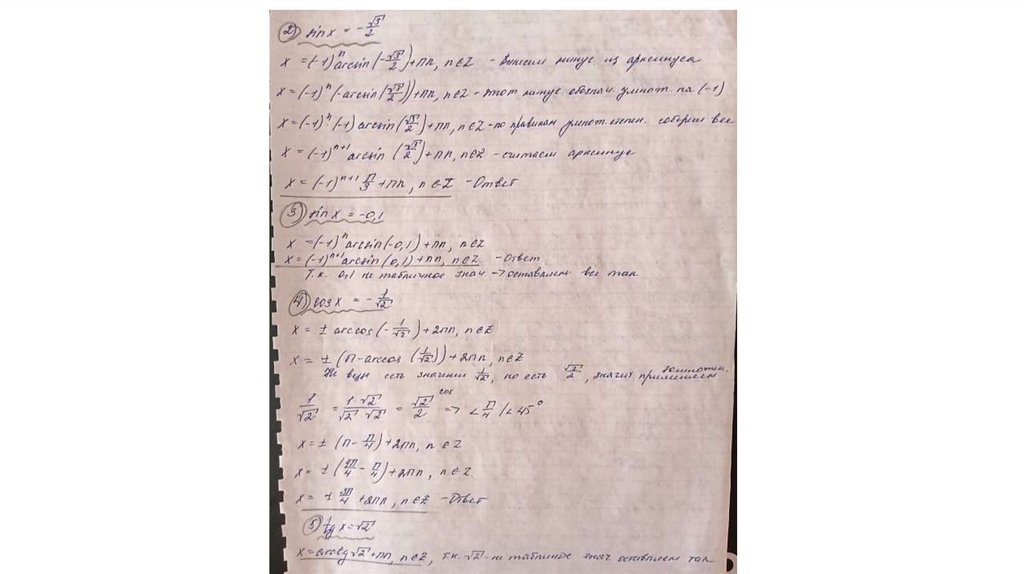 2) sin x = -√3/2
x = (-1)^n arcsin(-√3/2)+πn, n∈Z - Выносим минус из арксинуса
x = (-1)^n (-arcsin(√3/2))+πn, n∈Z - этот минус обознач. умнож. на (-1)
x = (-1)^n · (-1) arcsin(√3/2)+πn, n∈Z - по правилам умнож. степен. соберем все
x = (-1)^{n+1} arcsin(√3/2)+πn, n∈Z - считаем арксинус
x = (-1)^{n+1} π/3 + πn, n∈Z - Ответ
3) sin x = -0,1
x = (-1)^n arcsin(-0,1)+πn, n∈Z
x = (-1)^{n+1} arcsin(0,1)+πn, n∈Z - Ответ
Т.к. 0,1 не табличное знач. → оставляем все так
4) cos x = -1/√2
x = ± arccos(-1/√2)+2πn, n∈Z
x = ± (π-arccos(1/√2))+2πn, n∈Z
есть значения 1/√2, но есть √2/2, значит применяем
1/√2 = 1·√2/√2·√2 = √2/2 cos => ∠π/4 /∠45°
x = ± (π-π/4)+2πn, n∈Z
x = ± (4π/4 - π/4)+2πn, n∈Z
x = ± 3π/4 + 2πn, n∈Z - Ответ
5) tg x = √2
x = arctg √2 + πn, n∈Z, т.к. √2 - не табличное знач. оставляем так